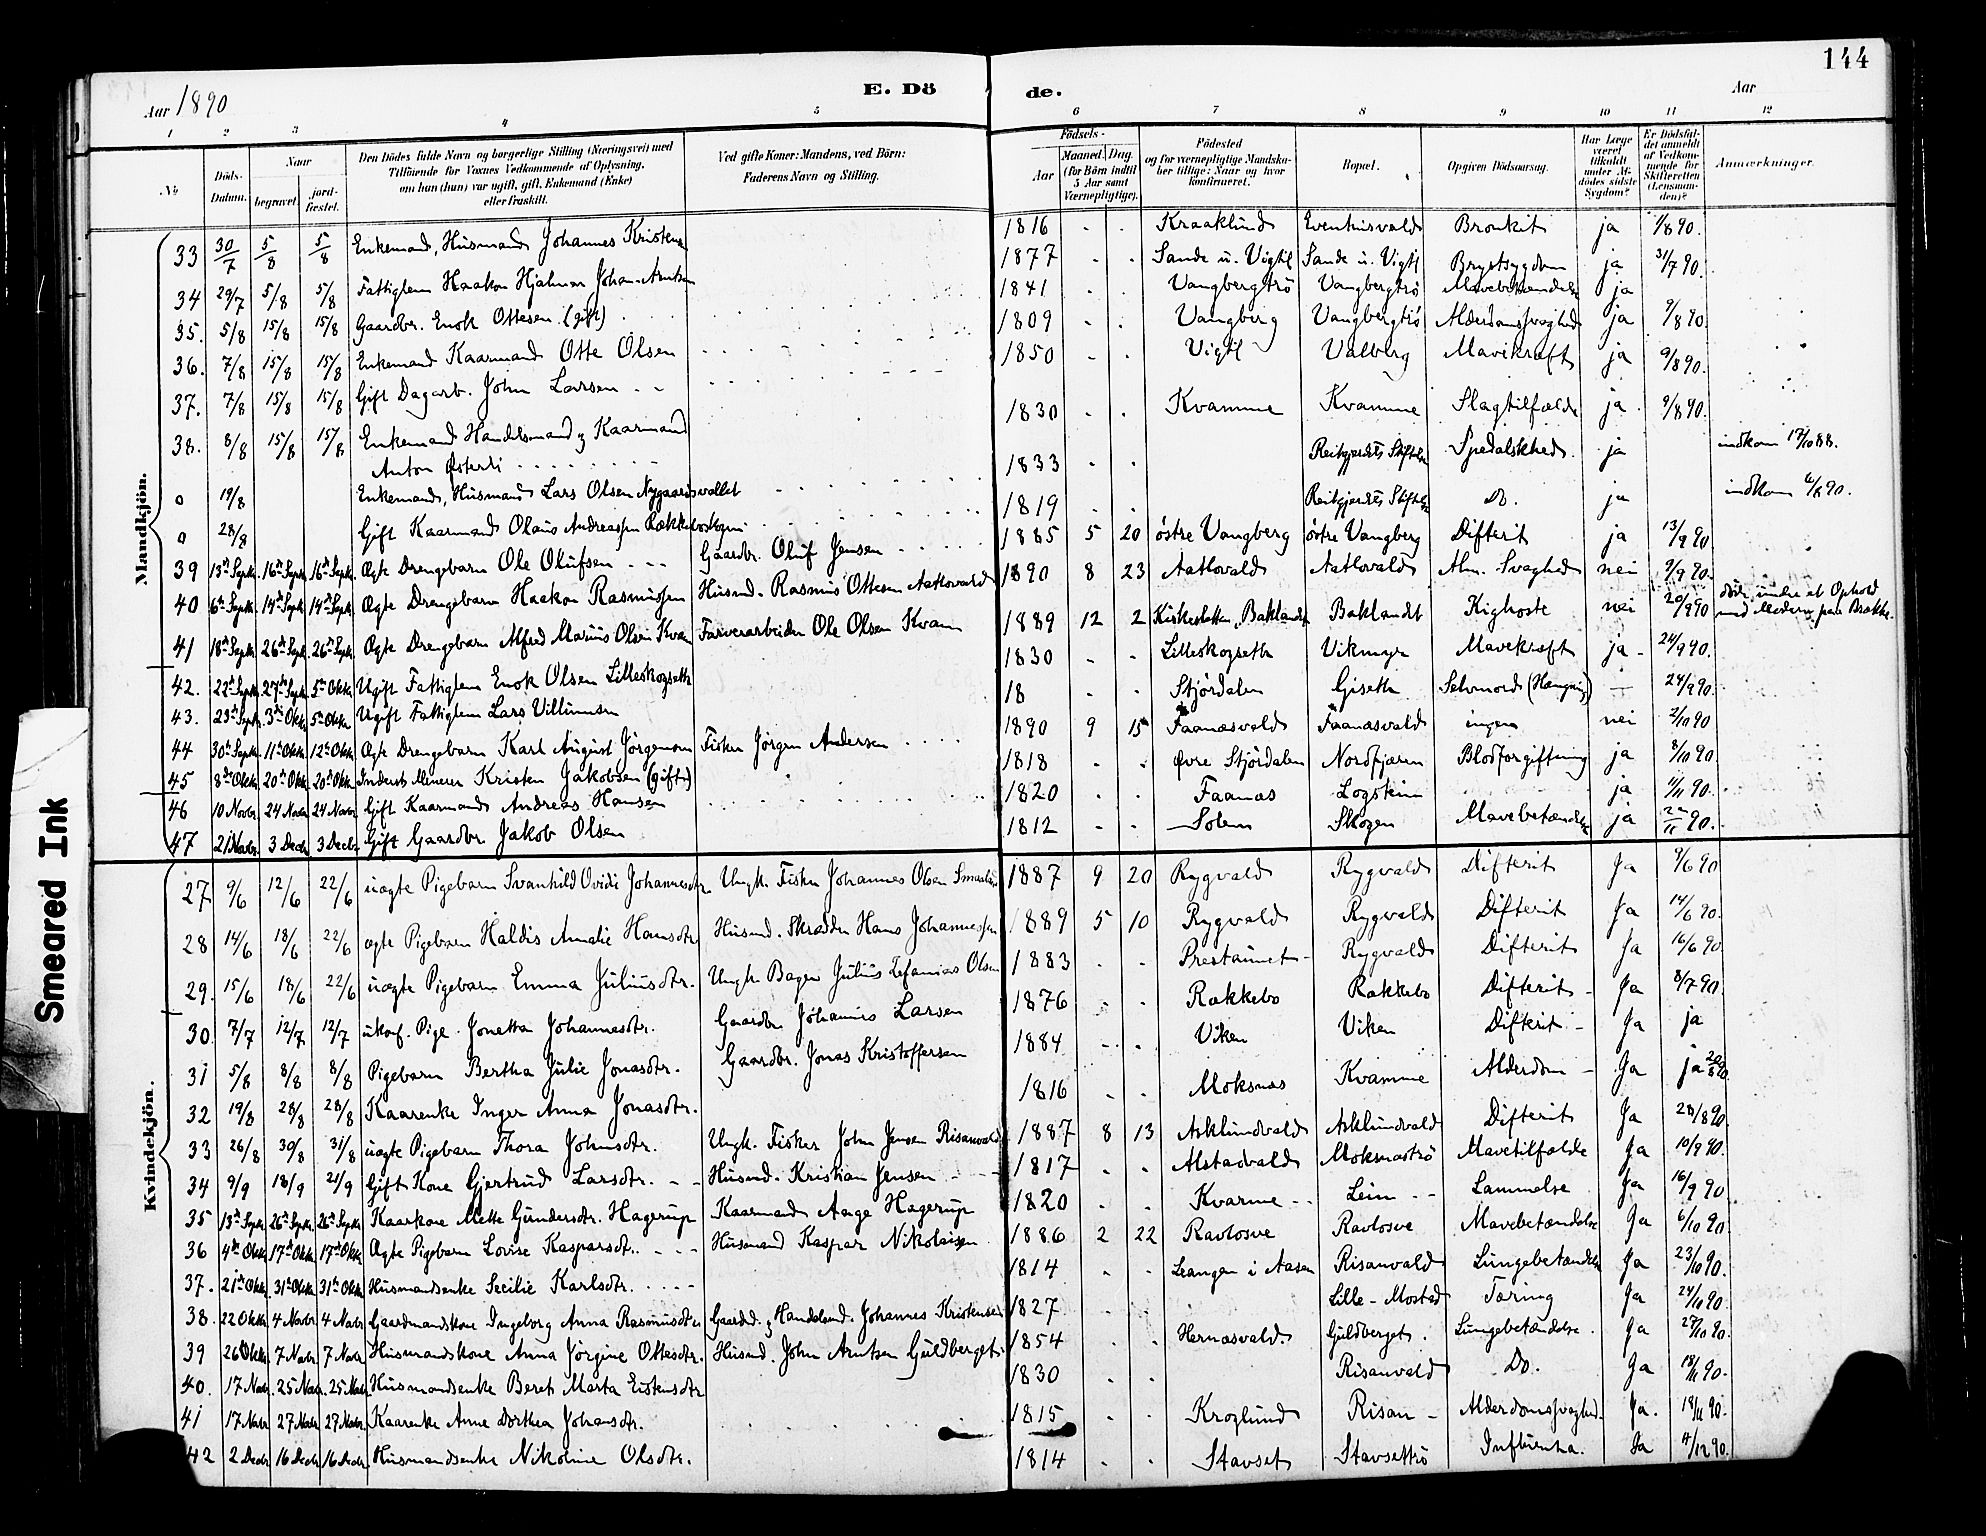 144
Aar 1890
E. Dö
de.
Aar
1 2 3 4 5 6 7 8 9 10 11 12
No
Döds-Datum.
Naar
begravet.
jord-fæstet.
Den Dödes fulde Navn og borgerlige Stilling (Næringsvei) med Tilföiende for Voxnes Vedkommende af Oplysning, om han (hun) var ugift, gift, Enkemand (Enke) eller fraskilt.
Ved gifte Koner: Mandens, ved Börn: Faderens Navn og Stilling.
Födsels-
Aar
Maaned. Dag.
(for Börn indtil 5 Aar samt Værnepligtige).
Födested og for værnepligtige Mandskaber tillige: Naar og hvor konfirmeret.
Bopæl.
Opgiven Dödsaarsag.
Har Læge været tilkaldt under Afdödes sidste Sygdom?
Er Dödsfaldet anmeldt af Vedkommende for Skifteretten (Lensmanden)?
Anmærkninger.
Mandkjön.
33 30/7 5/8 5/8 Enkemand, Husmand Johannes Kristens 1816 Kraaklund Bronkit ja 1/8 90.
34 29/7 5/8 5/8 Fattiglem Haakon Hjalmar Johan Arntsen 1877 Sande u. Vigtil Sande u. Vigtl Brystsygdom ja 31/7 90.
35. 5/8 15/8 15/8 Gaardbr. Enok Ottesen (gift) 1841 Vangbergtrö Vangbergtrö Mavebetændelse ja
36. 7/8 15/8 15/8 Enkemand Kaarmand Otte Olsen 1809 Vangberg Vangbergtrö Alderdomssvaghed ja 9/8 90.
37. 7/8 15/8 15/8 Gift Dagarb. John Larsen 1850 Vigtil Valberg Mavekræft ja 9/8 90.
38. 8/8 15/8 15/8 Enkemand Handelsmand & Kaarmand Anton Østerli 1830 Kvamme Kvamme Slagtilfælde ja 9/8 90.
o 19/8 Enkemand, Husmand Lars Olsen Nygaardsvollet 1833 Reitgjerdets Stiftelse Spedalskhed ja indkom 17/10 88.
o 28/8 Gift Kaarmand Olaus Andreassen 1819 Reitgjerdets Stiftelse Do. ja indkom 6/8 90.
39 13de Septr. 16de Septr. 16de Septr. Ægte Drengebarn Ole Olufsen Gaardbr. Oluf Jensen 1885 5 20 östre Vangberg östre Vangberg Difterit ja 13/9 90
40 6te Septr. 14de Septr. 14de Septr. Ægte Drengebarn Haakon Rasmussen Husmd. Rasmus Ottesen Aatlovald 1890 8 23 Aatlovald Aatlovald Alm. Svaghed nei 9/9 90.
41 18de Septr. 26de Septr. 26de Septr. Ægte Drengebarn Alfred Marius Olsen Kvam Farverarbeider Ole Olsen Kvam 1889 12 2 Kirkesletten, Baklandet Baklandt Kighoste nei 20/9 90 döde under et Ophold med Moderen paa Brække.
42. 22de Septr. 27de Septr. 5te Oktbr. Ugift Fattiglem Enok Olsen Lilleskogseth 1830 Lilleskogseth Vikmyr Mavekræft ja 24/9 90.
43. 23de Septr. 3de Oktr. 5te Oktbr. Ugift Fattiglem Lars Villumsen 18 Stjördalen Giseth Selvmord (Hængning) 24/9 90.
44 30te Septr. 11te Oktbr. 12te Oktbr. Ægte Drengebarn Karl August Jörgensen Fisker Jörgen Andersen 1890 9 15 Faanæsvald Faanæsvald ingen nei 2/10 90
45 8de Oktbr. 20de Oktbr. 20de Oktbr. Inderst Minerer Kristen Jakobsen (gift) 1818 Øvre Stjördalen Nordfjæren Blodforgiftning ja 8/10 90
46 10 Novbr. 24 Novbr. 24 Novbr. Gift Kaarmand Andreas Hansen 1820 Faanæs Logstein ja 11/11 90.
47 21 Novbr. 3 Decbr. 3 Decbr. Gift Gaardbr. Jakob Olsen 1812 Solem Skogen Mavebetændelse ja 22/11 90.
Kvindekjön.
27 9/6 12/6 22/6 uægte Pigebarn Svanhild Ovidi Johannesdtr. Ungk. Fisker Johannes Olsen 1887 9 20 Rygvald Rygvald Difterit Ja 9/6 90
28 14/6 18/6 22/6 ægte Pigebarn Haldis Amalie Hansdtr Husmd. Skrædder Hans Johannessen 1889 5 10 Rygvald Rygvald Difterit Ja 14/6 90.
29. 15/6 18/6 22/6 uægte Pigebarn Emma Juliusdtr. Ungk. Bager Julius Zefanias Olsen 1883 Prestaunet Rygvald Difterit Ja 16/6 90.
30. 7/7 12/7 12/7 ukonf. Pige Jonetta Johannesdtr. Gaardbr. Johannes Larsen 1876 Rækkebo Rækkebo Difterit Ja 8/7 90.
31 5/8 8/8 8/8 Pigebarn Bertha Julie Jonasdtr. Gaardbr. Jonas Kristoffersen 1884 Viken Viken Difterit Ja ja
32 19/8 28/8 28/8 Kaarenke Inger Anna Jonasdtr. 1816 Moksnæs Kvamme Alderdom Ja ja 20/8 90.
33 26/8 30/8 31/8 uægte Pigebarn Thora Johnsdtr. Ungk. Fisker John Jensen Risanvald 1887 8 13 Asklundvald Asklundvald Difterit Ja 28/8 90.
34 9/9 18/9 21/9 Gift Kone Gjertrud Larsdtr. Husmd. Kristian Jensen 1817 Alstadvald Moksneströ Mavetilfælde Ja 10/9 90.
35 13de Septr. 26de Septr. 26de Septr. Kaarkone Mette Gundersdtr. Hagerup Kaarmand Aage Hagerup 1820 Kvamme Lein Lammelse Ja 16/9 90
36 4de Oktbr. 17de Oktbr. 17de Oktbr. Ægte Pigebarn Lovise Kasparsdtr. Husmand Kaspar Nikolaisen 1886 2 22 Ravlosve Ravlosve Mavebetændelse Ja 6/10 90.
37. 21de Oktbr. 31te Oktbr. 31te Oktbr. Husmandsenke Secilie Karlsdtr. 1814 Leangen i Aasen Risanvald Lungebetændelse Ja 23/10 90.
38. 22 Oktbr. 4 Novbr. 4 Novbr. Gaardmandskone Ingeborg Anna Rasmusdtr. Gaardmd. & Handelsmd. Johannes Kristensen 1827 Lille-Mostad Tæring Ja 24/10 90.
39 26 Oktbr. 7 Novbr. 7 Novbr. Husmandskone Anna Jörgine Ottesdtr. Husmd. John Arntsen Guldberget 1854 Hernæsvald. Guldberget. Lungebetændelse. Ja 27/10 90.
40. 17 Novbr. 25 Novbr. 25 Novbr. Husmandsenke Beret Marta Eistensdtr 1830 Risanvald Do. Ja 18/11 90.
41 17 Novbr. 27 Novbr. 27 Novbr. Kaarenke Anne Dorthea Johansdtr. 1815 Kroglund Risan Alderdomssvaghed. Ja. 18/11 90.
42 2 Decbr. 16 Decbr. 16 Decbr. Husmandsenke Nikoline Olsdtr. 1814 Stavset Stavsettrö Influenza. Ja 4/12 90.
Smeared Ink